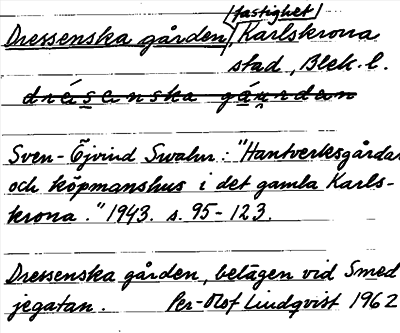 (fastighet)
Dressenska gården, Karlskrona
stad, Blek. l.
drésenska gaurdan
Sven-Öjvind Swahn: "Hantverksgårdar
och köpmanshus i det gamla Karls-
krona." 1943. s. 95-123.
Dressenska gården, belägen vid Smed
jegatan. Per-Olof Lindqvist 1962